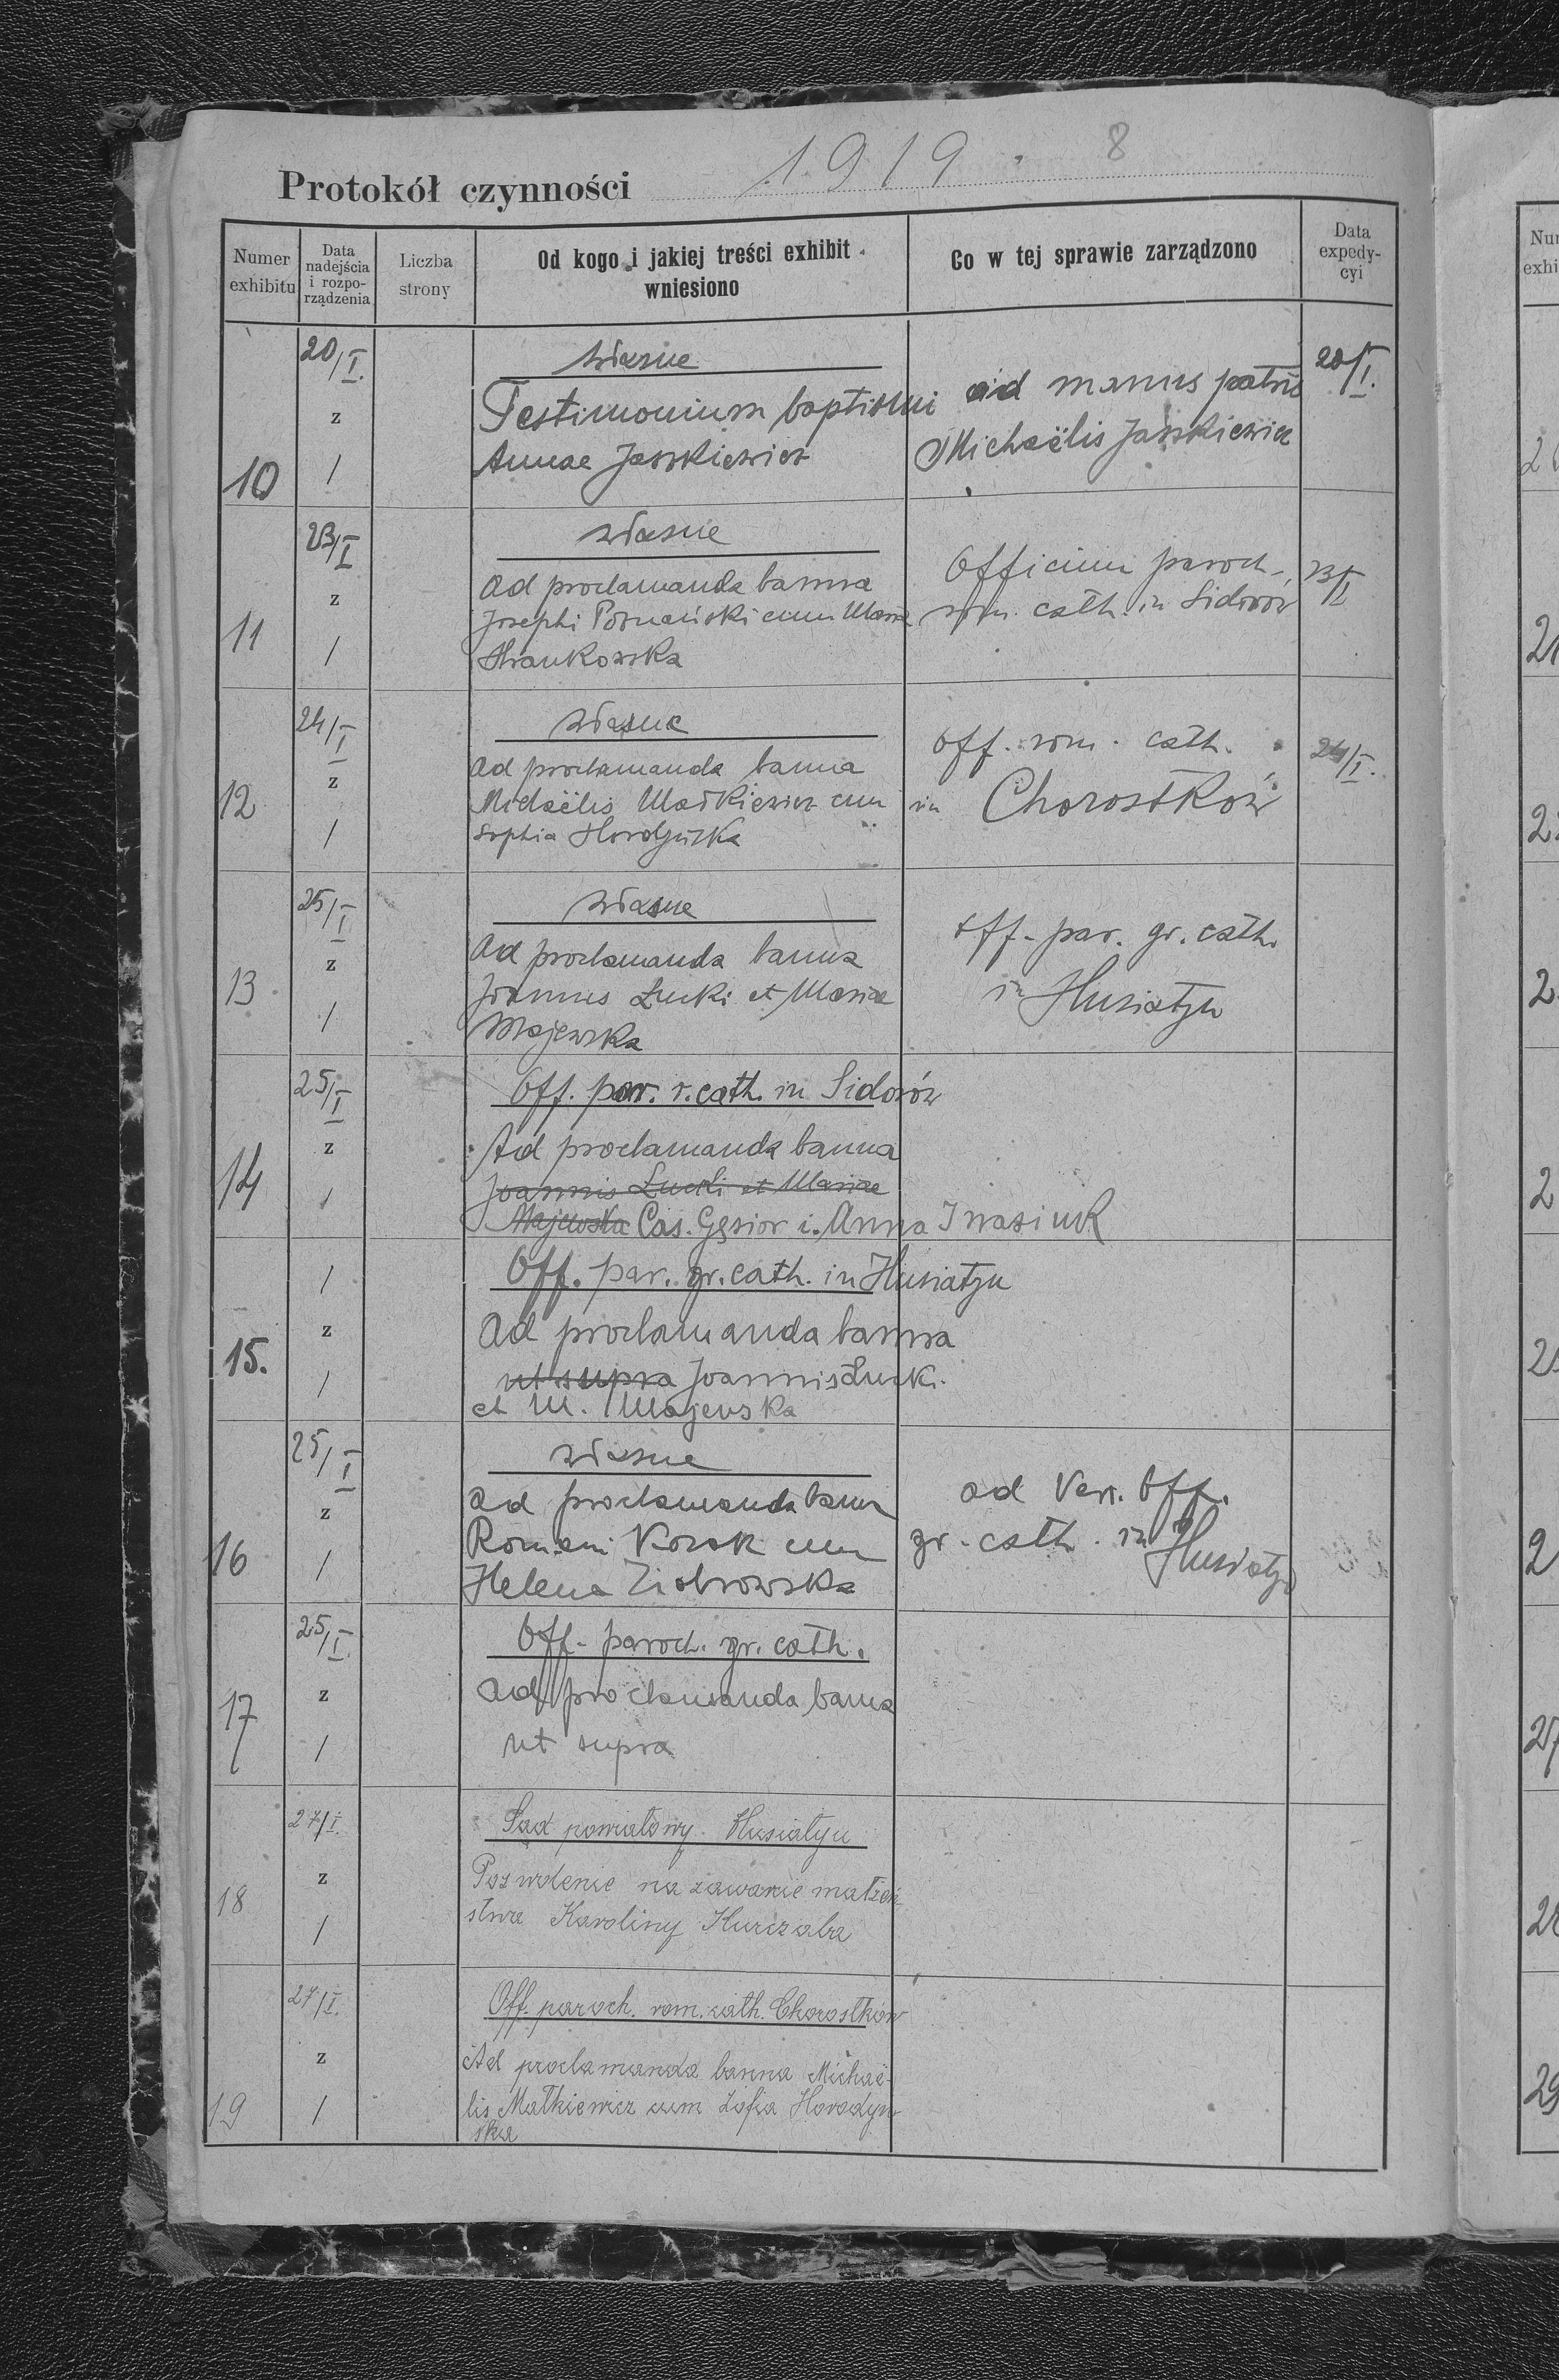 1919. 8
Protokół czynności
Numer exhibitu
Data nadejścia i rozporządzenia
Liczba strony
Od kogo i jakiej treści exhibit wniesiono
Co w tej sprawie zarządzono
Data expedycyi
20/I.
własne
20/I.
Testimonium baptismi
ad manus patris
z
Annae Jaszkiewicz
Michaëlis Jaszkiewicz
10
/
23/I
własne
Ad proclamanda banna
Officium paroch.
23/I
z
Josephi Poznański cum Maria
rom. cath. in Sidorów
11
/
Hrankowska
24/I
własne
off. rom. cath.
24/I.
z
Ad proclamanda banna
12
Michaëlis Małkiewicz cum
in Chorostków
/
Sophia Horodyńska
25/I
własne
off. par. gr. cath.
z
Ad proclamanda banna
13
Joannis Łucki et Mariae
in Husiatyn
/
Majewska
25/I
Off. par. r. cath. in Sidorów
z
Ad proclamanda banna
14
Joannis Łucki et Mariae
/
Majewska Cas. Gęsior i. Anna Iwasiuk
/
Off. par. gr. cath. in Husiatyn
z
Ad proclamanda banna
15.
ut supra Joannis Łucki
/
et M. Majewska
25/I
własne
z
ad proclamanda banna
ad Ven. Off.
16
Romani Kozak cum
gr. cath. in Husiatyn
/
Helena Ziobrowska
25/I.
Off. paroch. gr. cath.
z
ad proclamanda banna
17
/
ut supra
27/I.
Sąd powiatowy Husiatyn
z
Pozwolenie na zawarcie małżeń
18
stwa Karoliny Kurczaba
/
27/I.
Off. paroch. rom. cath. Chorostków
z
Ad proclamanda banna Michaë-
19
lis Małkiewicz cum Zofia Horodyń
/
ska